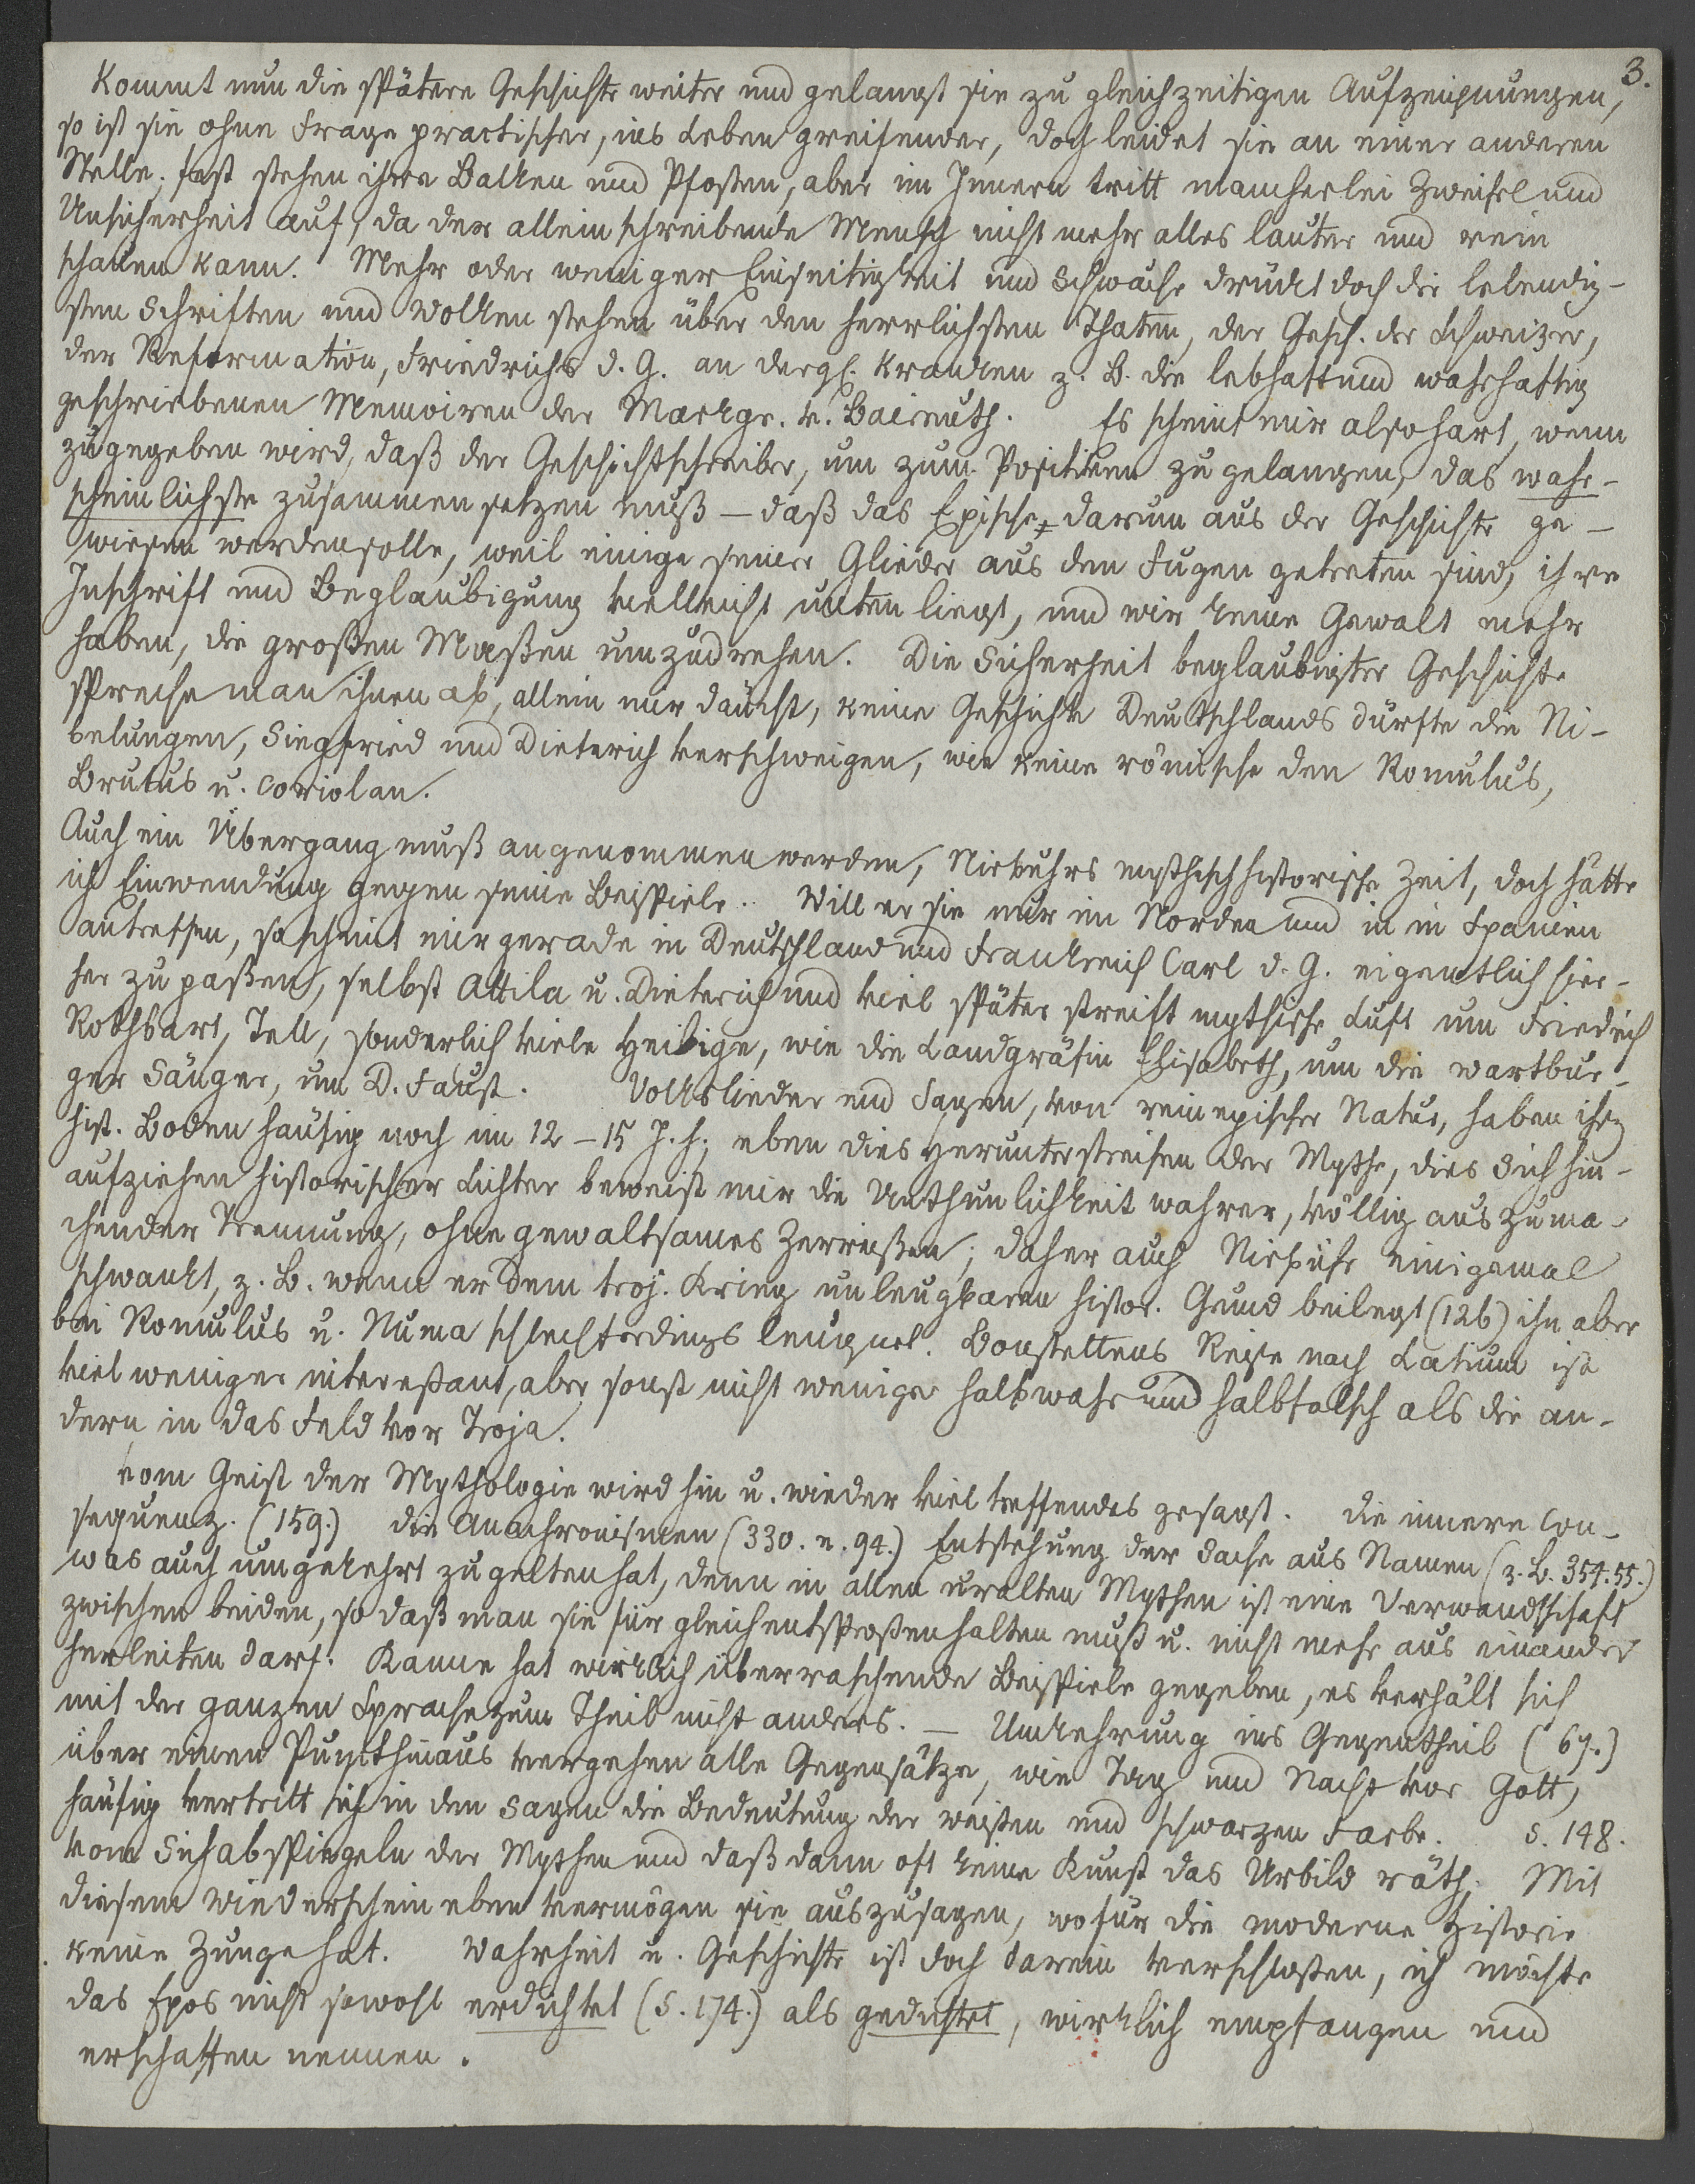 3.
Kommt nun die spätere Geschichte weiter und gelangt sie zu gleichzeitigen Aufzeichnungen,
so ist sie ohne Frage practischer, ins Leben greifender, doch leidet sie an einer anderen
Stelle; fest stehen ihre Balken und Pfosten, aber im Innern tritt mancherlei Zweifel und
Unsicherheit auf, da der allein schreibende Mensch nicht mehr alles lauter und rein
schauen kann. Mehr oder weniger Einseitigkeit und Schwäche drückt doch die lebendig-
sten Schriften und Wolken stehen über den herrlichsten Thaten, der Gesch. der Schweizer,
der Reformation, Friedrichs d. G. an dergl. kranken z. B. die lebhaft und wahrhaftig
geschriebenen Memoiren der Markgr. v. Baireuth. Es scheint mir also hart, wenn
zugegeben wird, daß der Geschichtschreiber, um zum Positiven zu gelangen, das wahr-
scheinlichste zusammensetzen muß – daß das Epische darum aus der Geschichte ge-
wiesen werden solle, weil einige seiner Glieder aus den Fugen getreten sind, ihre
Inschrift und Beglaubigung vielleicht unten liegt, und wir keine Gewalt mehr
haben, die großen Maßen umzudrehen. Die Sicherheit beglaubigter Geschichte
spreche man ihnen ab, allein mir däucht, keine Geschichte Deutschlands dürfte die Ni-
belungen, Siegfried und Dieterich verschweigen, wie keine römische den Romulus,
Brutus u. Coriolan.
Auch ein Übergang muß angenommen werden, Niebuhrs mythisch historische Zeit, doch hätte
ich Einwendung gegen seine Beispiele. Will er sie nur im Norden und in in Spanien
antreffen, so scheint mir gerade in Deutschland und Frankreich Carl d. G. eigentlich hier-
her zu paßen, selbst Attila u. Dieterich und viel später streift mythische Luft um Friedrich
Rothbart, Tell, sonderlich viele Heilige, wie die Landgräfin Elisabeth, um die wartbur-
ger Sänger, um D. Faust. Volkslieder und Sagen, von rein epischer Natur, haben ihren
hist. Boden häufig noch im 12 – 15 J. h. eben dies Herunterstreifen der Mythe, dies Sich hin-
aufziehen historischer Lichter beweist mir die Unthunlichkeit wahrer, völlig auszuma-
chender Trennung, ohne gewaltsames Zerreißen; daher auch Niebuhr einigemal
schwankt, z. B. wenn er dem troj. Krieg unleugbaren histor. Grund beilegt (126) ihn aber
bei Romulus u. Numa schlechterdings leugnet. Bonstettens Reise nach Latium ist
viel weniger intereßant, aber sonst nicht weniger halbwahr und halbfalsch als die an-
dern in das Feld vor Troja.
vom Geist der Mythologie wird hin u. wieder viel treffendes gesagt. die innere Con-
sequenz. (159.) die Anachronismen (330. n. 94.) Entstehung der Sache aus Namen (z. B. 354. 55.)
was auch umgekehrt zu gelten hat, denn in allen uralten Mythen ist eine Verwandtschaft
zwischen beiden, so daß man sie für gleichentsproßen halten muß u. nicht mehr aus einander
herleiten darf. Kanne hat wirklich überraschende Beispiele gegeben, es verhält sich
mit der ganzen Sprache zum Theil nicht anders. – Umkehrung ins Gegentheil (67.)
über einen Punct hinaus vergehen alle Gegensätze, wie Tag und Nacht vor Gott,
häufig vertritt sich in den Sagen die Bedeutung der weißen und schwarzen Farbe. S. 148.
vom Sichabspiegeln der Mythen und daß dann oft keine Kunst das Urbild räth. Mit
diesem Wiederschein eben vermögen sie auszusagen, wofür die moderne Historie
keine Zunge hat. Wahrheit u. Geschichte ist doch darein verschloßen, ich möchte
das Epos nicht sowohl erdichtet (S. 174.) als gedichtet, wirklich empfangen und
erschaffen nennen.